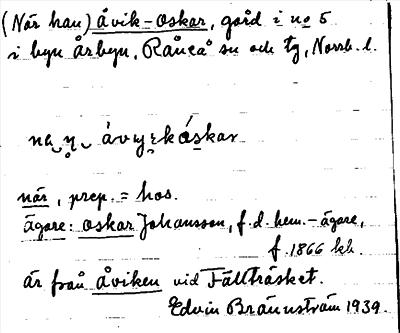 (När han) åvik-oskar, gård i no 5
i byn Årbyn, Råneå sn och tg, Norrb. l.
när, prep. = hos.
ägare: oskar Johansson, f.d. hem.-ägare,
f. 1866 kb.
är från åviken vid Fällträsket.
Edvin Brännström 1939.